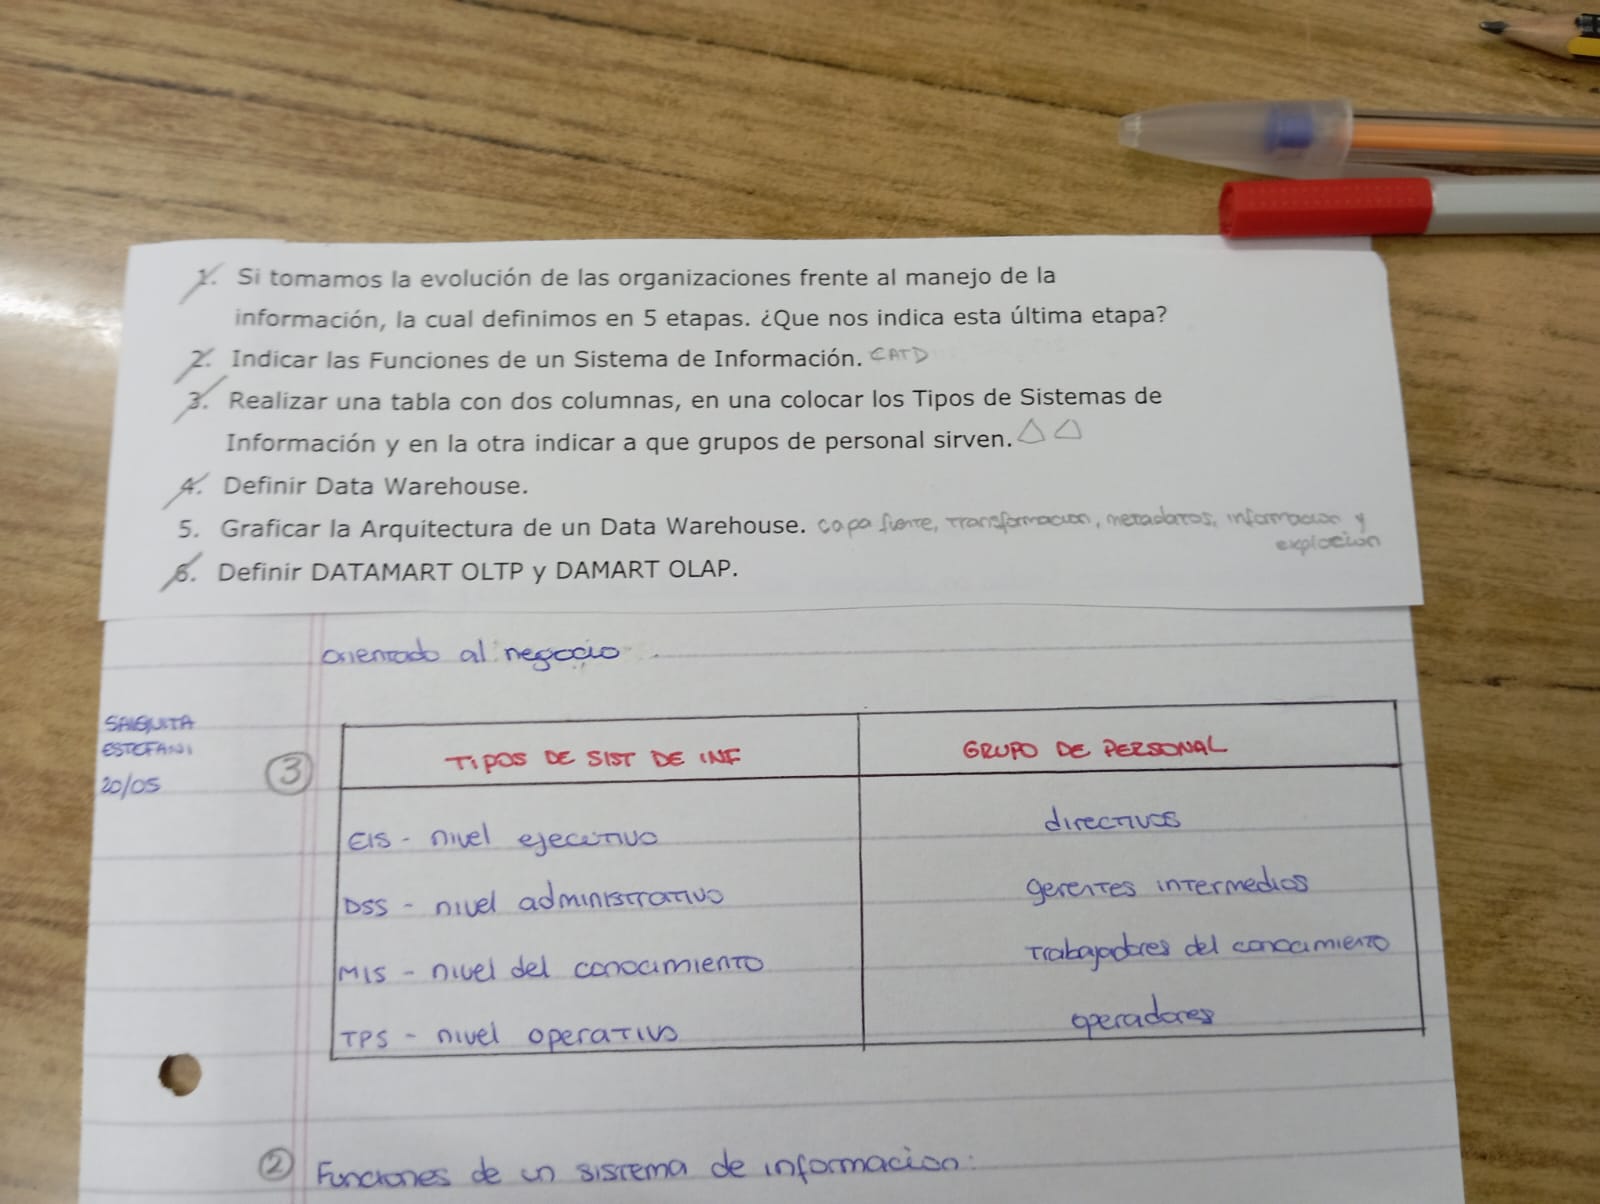 1. Si tomamos la evolución de las organizaciones frente al manejo de la
información, la cual definimos en 5 etapas. ¿Que nos indica esta última etapa?
2. Indicar las Funciones de un Sistema de Información. CATD
3. Realizar una tabla con dos columnas, en una colocar los Tipos de Sistemas de
Información y en la otra indicar a que grupos de personal sirven.
4. Definir Data Warehouse.
5. Graficar la Arquitectura de un Data Warehouse. capa fuente, transformacion, metadatos, informacion y
explocion
6. Definir DATAMART OLTP y DAMART OLAP.
orientado al negocio
SAIQUITA
ESTEFANI
20/05
3
TIPOS DE SIST DE INF
GRUPO DE PERSONAL
EIS - nivel ejecutivo
directivos
DSS - nivel administrativo
gerentes intermedios
MIS - nivel del conocimiento
Trabajadores del conocimiento
TPS - nivel operativo
operadores
2 Funciones de un sistema de informacion: